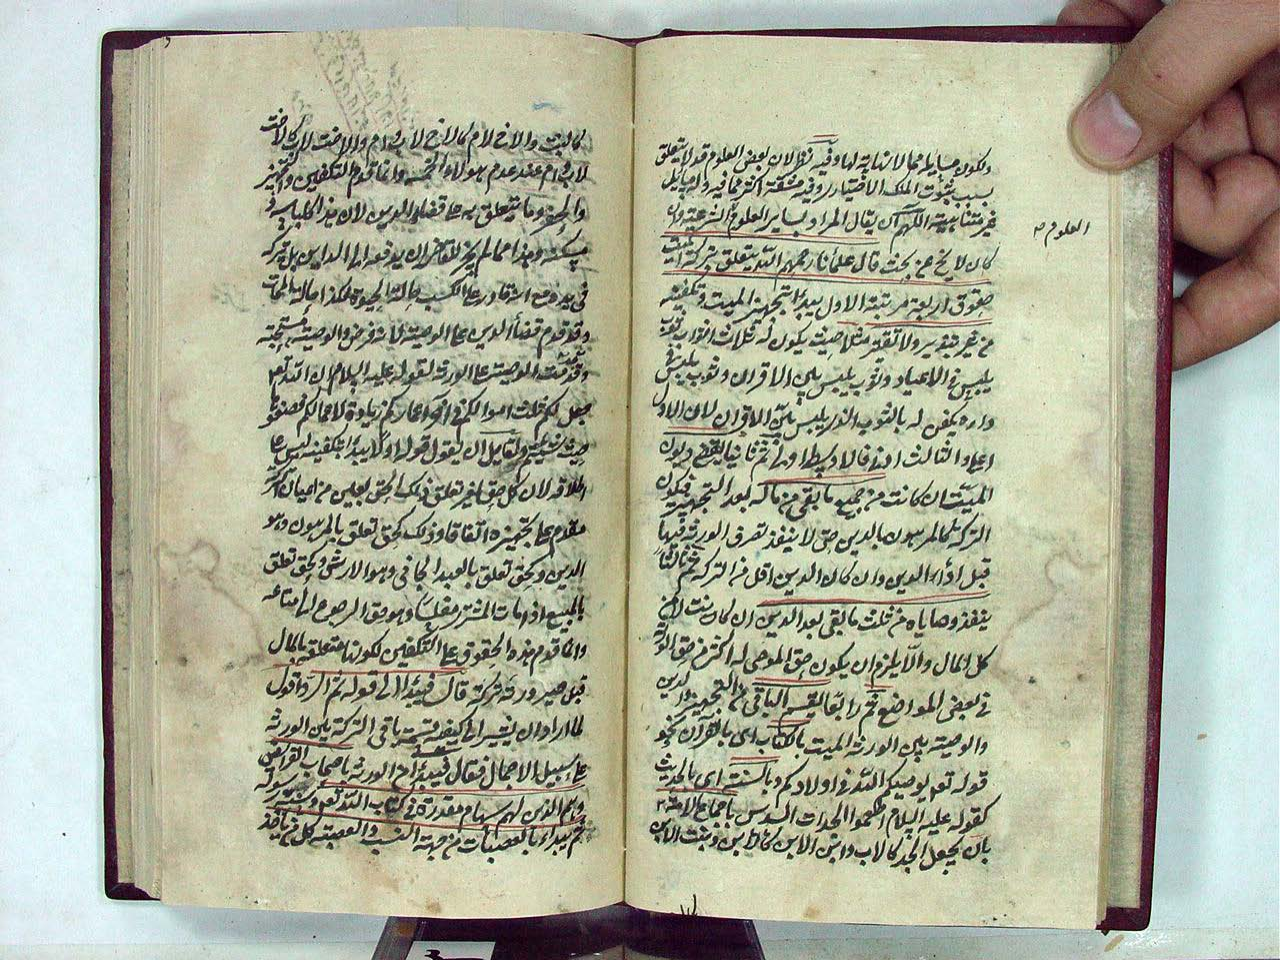 ولكون مسايله مما لا نهاية لها وفيه نظر لان بعض العلوم قد لا يتعلق
بسبب ثبوت الملك الاختياري وفيه مشقة اكثر مما فيه وله مسايل
غير متناهية اللهم الا ان يقال المراد بساير العلوم الشرعية وان
العلوم
كان لا يخ عن بحث قال علمأنا رحمهم الله يتعلق بتركة الميت
حقوق اربعة مرتبة الاول يبدأ بتجهيز الميت وتكفينه
من غير تبذير ولا تقتير مثلا حيث يكون له ثلاث اثواب ثوب
يلبس في الاعياد وثوب يلبس بين الاقران وثوب يلبس في
داره يكفن له بالثوب الذي يلبس بين الاقران لان الاول
اعلى والثالث ادنى فالاوسط اولى ثم ثانيا يقضى ديون
الميت ان كانت من جميع ما بقى من ماله بعد التجهيز فيكون
التركة كالمرهون بالدين حتى لا ينفذ تصرف الورثة فيها
قبل اداء الدين وان كان الدين اقل من التركة ثم ثالثا
ينفذ وصاياه من ثلث ما بقى بعد الدين ان كان
كل المال والا يلزم ان يكون حق الموصى له اكثر من حق الورثة
في بعض المواضع ثم رابعا يقسم الباقي بعد التجهيز والدين
والوصية بين الورثة الميت بالكتاب اى بالقرآن نحو
قوله تع يوصيكم الله في اولادكم وبالسنة اى بالحديث
كقوله عليه السلام اطعموا الجدات السدس باجماع الامة
بان يجعل الجد كالاب وابن الابن كالابن وبنت الابن
كالبنت والاخ لام كالاخ لاب وام والاخت لاب كالاخت
لاب وام عند عدم هولاء الخمسة وانما قدم التكفين والتجهيز
وما يتعلق به على قضاء الدين لان هذا كلباسه
مسكنه وهذا مما لم يجز للقاضي ان يدفعه الى الداين بل يتركه
في يده مع انه قادر على الكسب حالة الحيوة فكذا حالة الممات
وقد قدم قضأ الدين على الوصية لانه فرض والوصية مستحبة
وقدمت الوصية على الورثة لقوله عليه السلام ان الله تع
جعل لكم ثلث اموالكم في آخر اعماركم زيادة لاعمالكم فضعوا
حيث شئتم ولقايل ان يقول قوله اولا يبدأ بتكفينه ليس على
اطلاقه لان كل حق لغير تعلق ذلك الحق بعين من اعيان التركة
مقدم على تجهيزه اتفاقا وذلك كحق تعلق بالمرهون وهو
الدين وكحق تعلق بالعبد الجاني وهو الارش وكحق تعلق
بالمبيع اذا مات المشتري مفلسا وهو حق الرجوع الى متاعه
وانما قدم هذه الحقوق على التكفين لكونها متعلقة بالمال
قبل صيرورته تركة قال فيبدأ الى قوله ثم الرد اقول
لما اراد ان يشير الى كيفية قسمة باقي التركة بين الورثة
على سبيل الاجمال فقال فيبدأ من الورثة باصحاب الفرائض
وهم الذين لهم سهام مقدرة في كتاب الله تع وسنة رسوله
ثم يبدأ بالعصبات من جهة النسب والعصبة كل من يأخذ